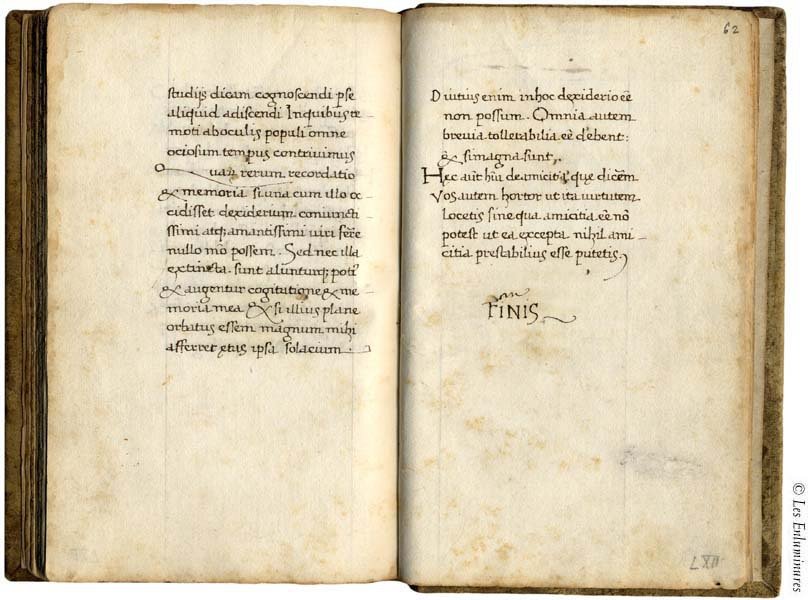 studijs dicam cognoscendi pse
aliquid adiscendi Inquibus re-
moti aboculis populi omne
ociosum tempus contrivimus
Quarū rerum recordatio
& memoria si una cum illo oc-
cidisset dexiderium coniuncti-
ssimi atq; amantissimi viri ferre
nullo mō possem. Sed nec illa
extincta sunt alunturq; poti'
& augentur cogitatione & me-
moria mea. & si illius plane
orbatus essem magnum mihi
afferret ętas ipsa solacium.
62
Diutius enim in hoc dexiderio eē
non possum. Omnia autem
brevia tollerabilia eē debent:
& si magna sunt.
Hęc aūt hūi de amicitia quę dicerem
Vos autem hortor ut ita virtutem
locetis sine qua amicitia eē nō
potest ut ea excepta nihil ami-
citia prestabilius esse putetis.
FINIS
LXII
© Les Enluminures